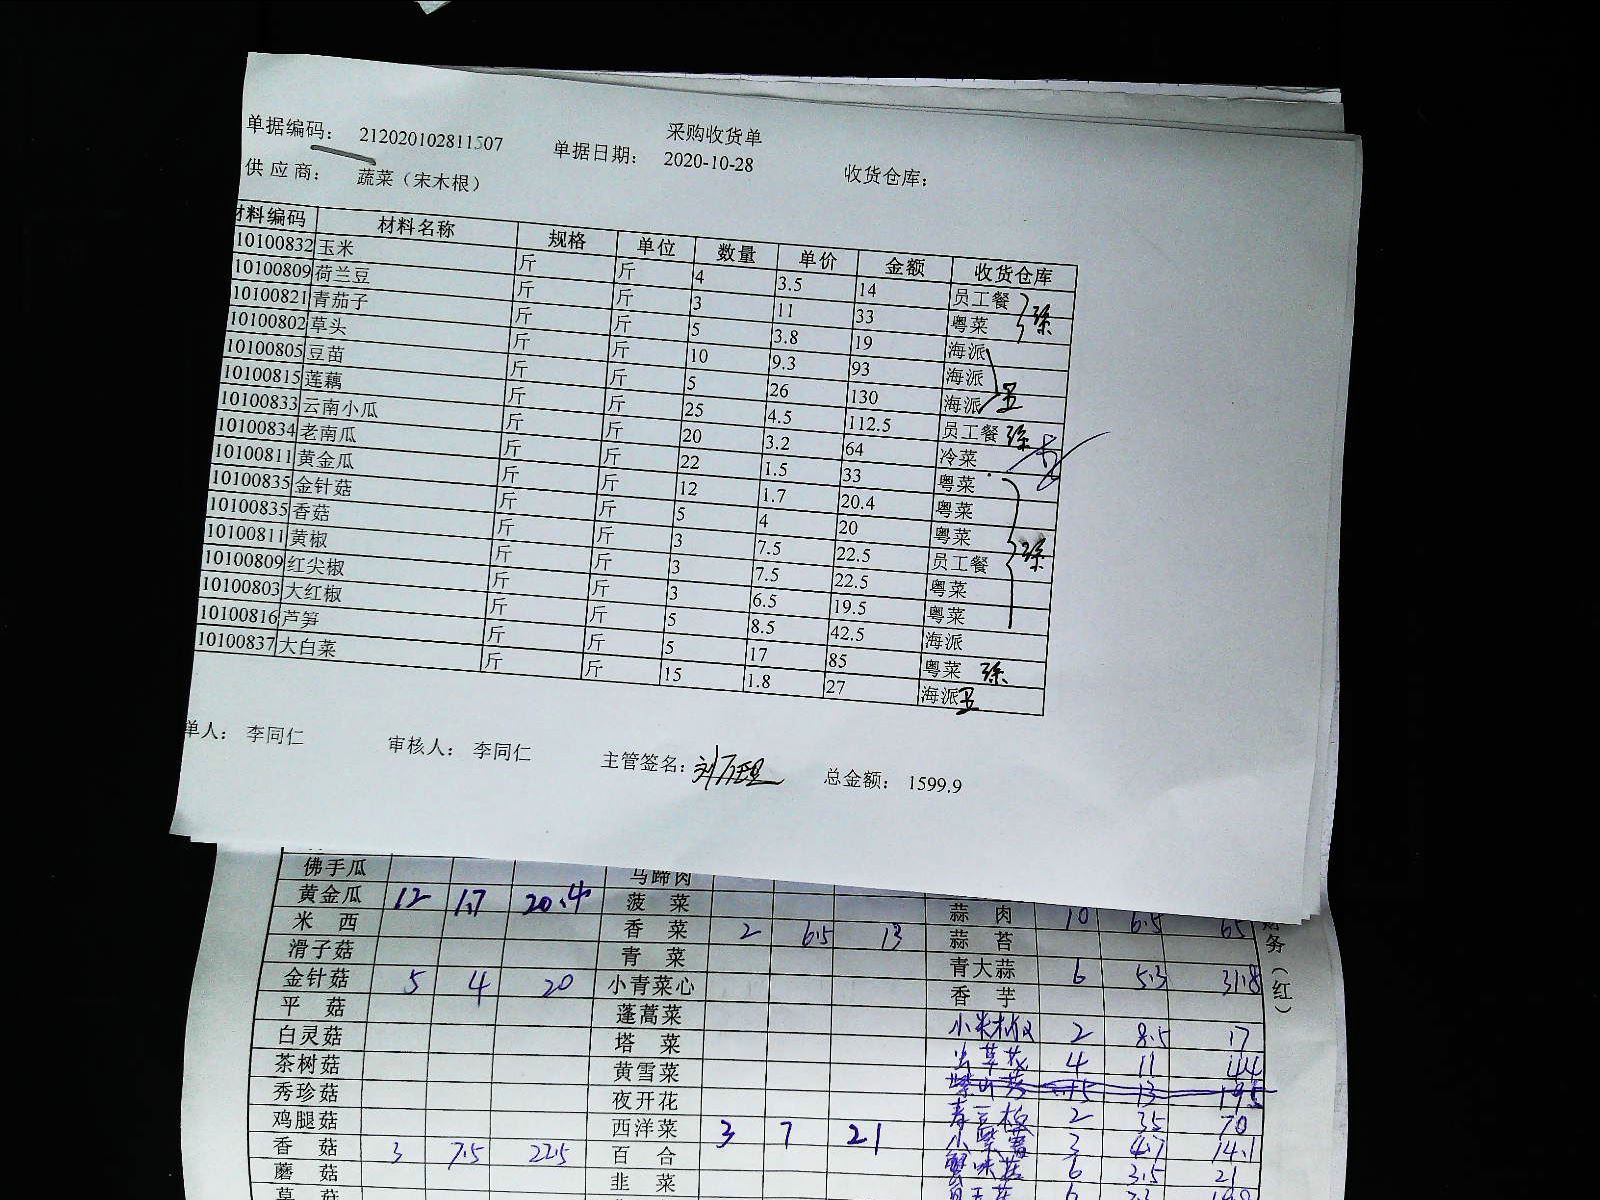 采购收货单
单据编码： 212020102811507 单据日期： 2020-10-28 收货仓库：
供应商： 蔬菜（宋木根）
材料编码 材料名称 规格 单位 数量 单价 金额 收货仓库
10100832 玉米 斤 斤 4 3.5 14 员工餐
10100809 荷兰豆 斤 斤 3 11 33 粤菜 徐
10100821 青茄子 斤 斤 5 3.8 19 海派
10100802 草头 斤 斤 10 9.3 93 海派
10100805 豆苗 斤 斤 5 26 130 海派 卫
10100815 莲藕 斤 斤 25 4.5 112.5 员工餐 徐
10100833 云南小瓜 斤 斤 20 3.2 64 冷菜
10100834 老南瓜 斤 斤 22 1.5 33 粤菜
10100811 黄金瓜 斤 斤 12 1.7 20.4 粤菜
10100835 金针菇 斤 斤 5 4 20 粤菜
10100835 香菇 斤 斤 3 7.5 22.5 员工餐 徐
10100811 黄椒 斤 斤 3 7.5 22.5 粤菜
10100809 红尖椒 斤 斤 3 6.5 19.5 粤菜
10100803 大红椒 斤 斤 5 8.5 42.5 海派
10100816 芦笋 斤 斤 5 17 85 粤菜 徐
10100837 大白菜 斤 斤 15 1.8 27 海派 卫
单人： 李同仁 审核人： 李同仁 主管签名： 总金额： 1599.9
佛手瓜 马蹄肉
黄金瓜 12 1.7 20.4 菠菜 蒜肉 10 6.5 65
米西 香菜 2 6.5 13 蒜苔
滑子菇 青菜 青大蒜 6 5.3 31.8
金针菇 5 4 20 小青菜心 香芋
平菇 蓬蒿菜 小米椒 2 8.5 17
白灵菇 塔菜 虫草花 4 11 44
茶树菇 黄雪菜 紫山药 15 13 195
秀珍菇 夜开花 2 35 70
鸡腿菇 西洋菜 3 7 21 3 4.7 14.1
香菇 3 7.5 22.5 百合 蟹味菇 6 3.5 21
蘑菇 韭菜
务（红）